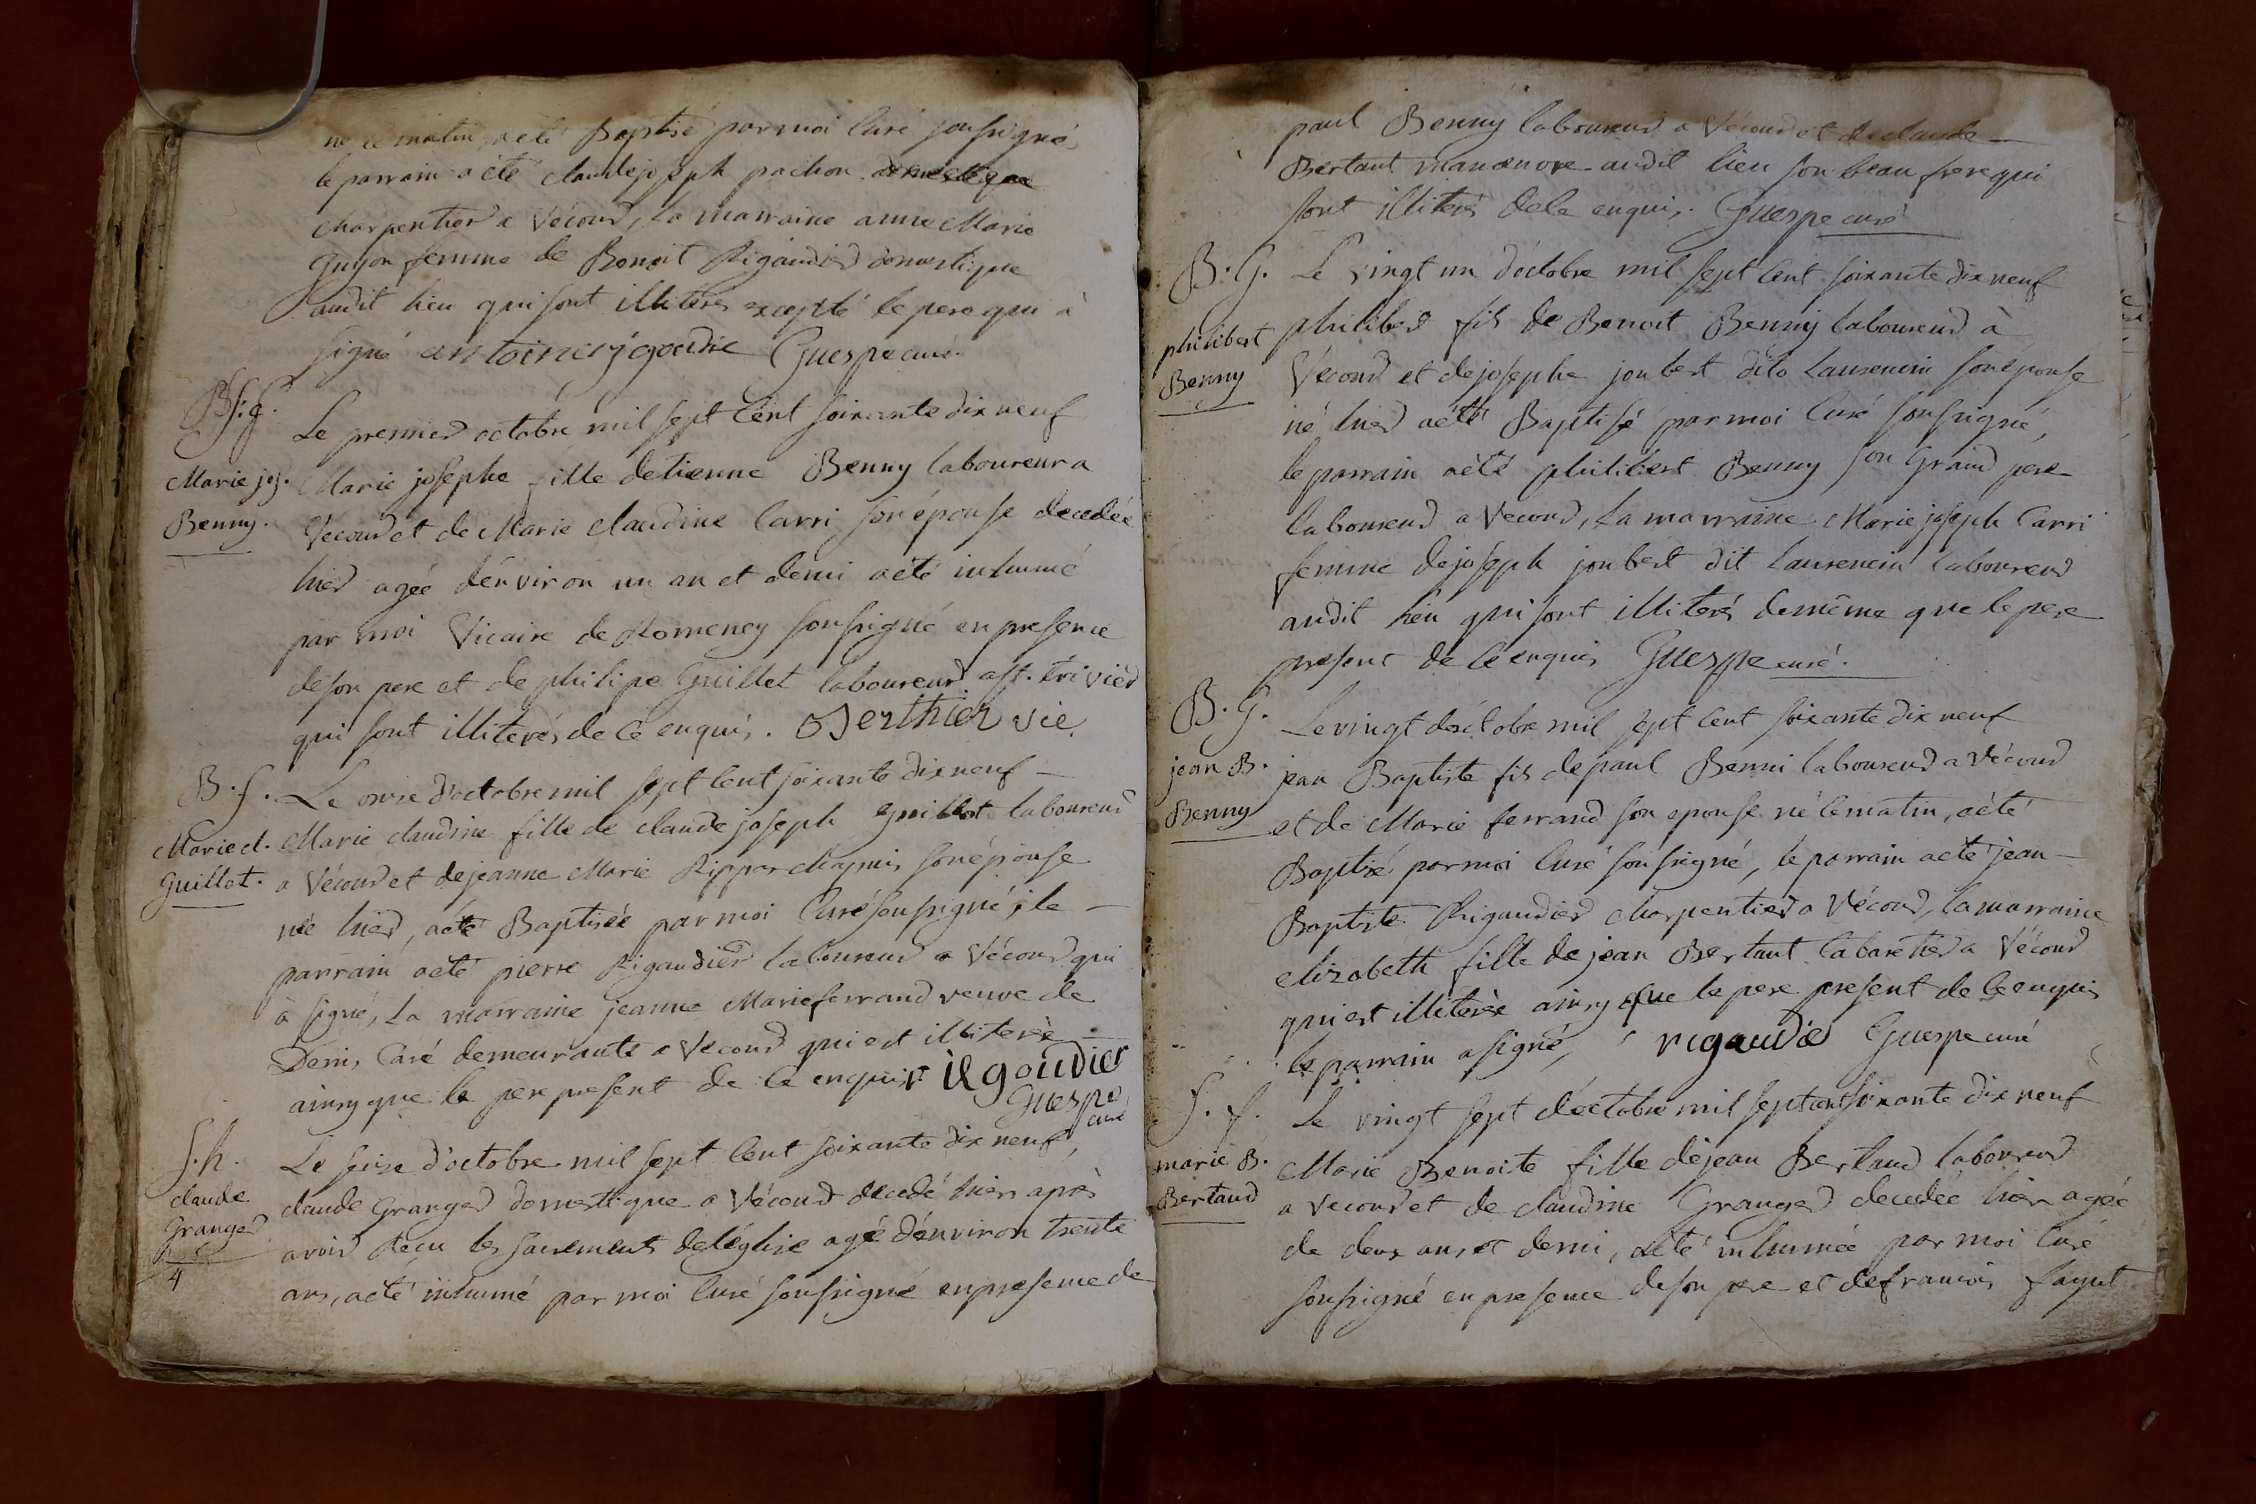 né ce matin, a eté Baptisé par moi Curé soussigné,
le parrain a été claude joseph pachon
charpentier a Vécour, la marraine anne Marie
Guyon femme de Benoit Rigaudier domestique
audit lieu qui sont illiterés excepté le pere qui à
signé antoine rigaudie Guespe curé.
Marie jos.
Benny.
Le premier octobre mil sept Cent soixante dix neuf
Marie josephe fille detienne Benny laboureur a
Vecour et de Marie claudine Carri son épouse decedée
hier agée d'énviron un an et demi a été inhumé
par moi Vicaire de Romeney soussigné en presence
de son pere et de philipe Guillet laboureur a st. trivier
qui sont illiterés de ce enquis. Berthier vic
B. f.
Marie cl.
Guillet.
Le onze d'octobre mil sept Cent soixante dix neuf —
Marie claudine fille de claude joseph Guillet laboureur
a Vécour et de jeanne Marie Rippar chapuis son épouse
née hier, a été Baptisée par moi Curé soussigné, le —
parrain a eté pierre Rigaudier laboureur a Vécour qui
à signé, La marraine jeanne Marie ferrand veuve de
Denis Caré demeurante a Vecour qui est illiterée —
ainsy que le pere present de ce enquis rigoudier
Guespe
curé
S. h.
claude
Granger
4
Le seize d'octobre mil sept Cent soixante dix neuf,
claude Granger domestique a Vécour decedé hier après
avoir Reçu les sacrements de l'église agé d'énviron trente
ans, a eté inhumé par moi Curé soussigné en presence de
paul Benny laboureur a Vécour et de claude —
Bertaut manœuvre audit lieu son beau frere qui
sont illiterés de ce enquis. Guespe curé
B. G.
philibert
Benny
Le vingt un d'octobre mil sept Cent soixante dix neuf
philibert fils de Benoit Benny laboureur à
Vécour et de josephe joubert dite Laurencin son épouse
né hier a été Baptisé par moi Curé soussigné,
le parrain a été philibert Benny son Grand pere
laboureur a Vecour, La marraine Marie joseph Carri
femme de joseph joubert dit Laurencin laboureur
audit lieu qui sont illiterés de même que le pere
present de ce enquis Guespe curé.
B. G.
jean B.
Benny
Le vingt d'octobre mil sept Cent soixante dix neuf
jean Baptiste fils de paul Benni laboureur a Vécour
et de Marie ferrand son epouse né ce matin, a été
Baptisé par moi Curé soussigné, le parrain a eté jean —
Baptiste Rigaudier charpentier a Vécour, la marraine
elizabeth fille de jean Bertaut Cabaretier a Vécour
qui est illiterée ainsy que le pere present de ce enquis
le parrain a signé, rigaudie Guespe curé
S. f.
marie B.
Bertaud
Le vingt sept d'octobre mil sept cent soixante dix neuf
Marie Benoite fille de jean Bertaud laboureur
a Vecour et de claudine Granger decedée hier agée
de deux ans et demi, a été inhumée par moi Curé
soussigné en presence de son pere et de francois fayet